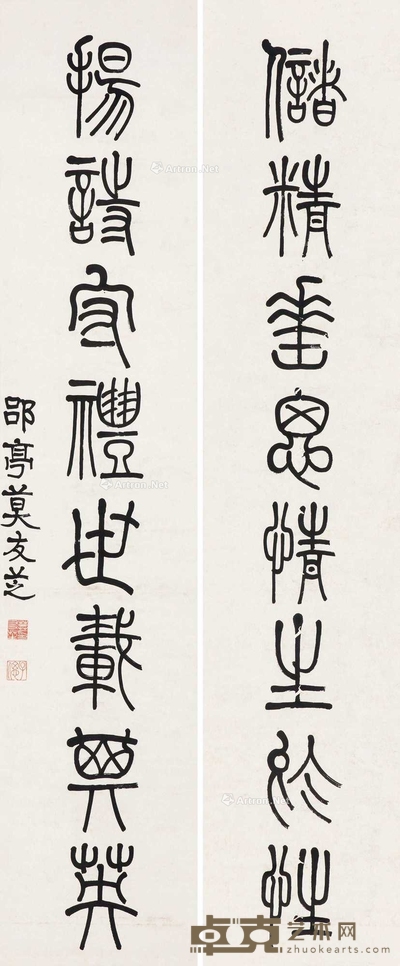 儲精垂思情生於性
揚詩守禮世載其英
郘亭莫友芝
Artron.Net
Artron.Net
Artron.Net
Artron.Net
卓克艺术网
zhuokearts.com